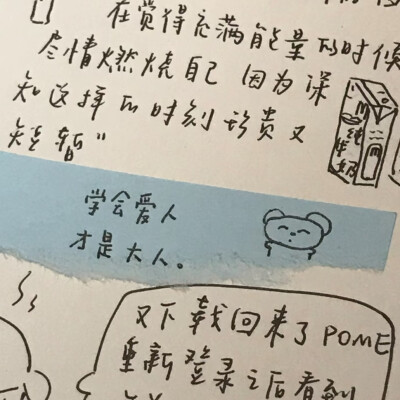 在觉得充满能量的时候
尽情燃烧自己 因为深
知这样的时刻珍贵又
短暂”
纯牛奶
学会爱人
才是大人。
又下载回来了POME
重新登录之后看到